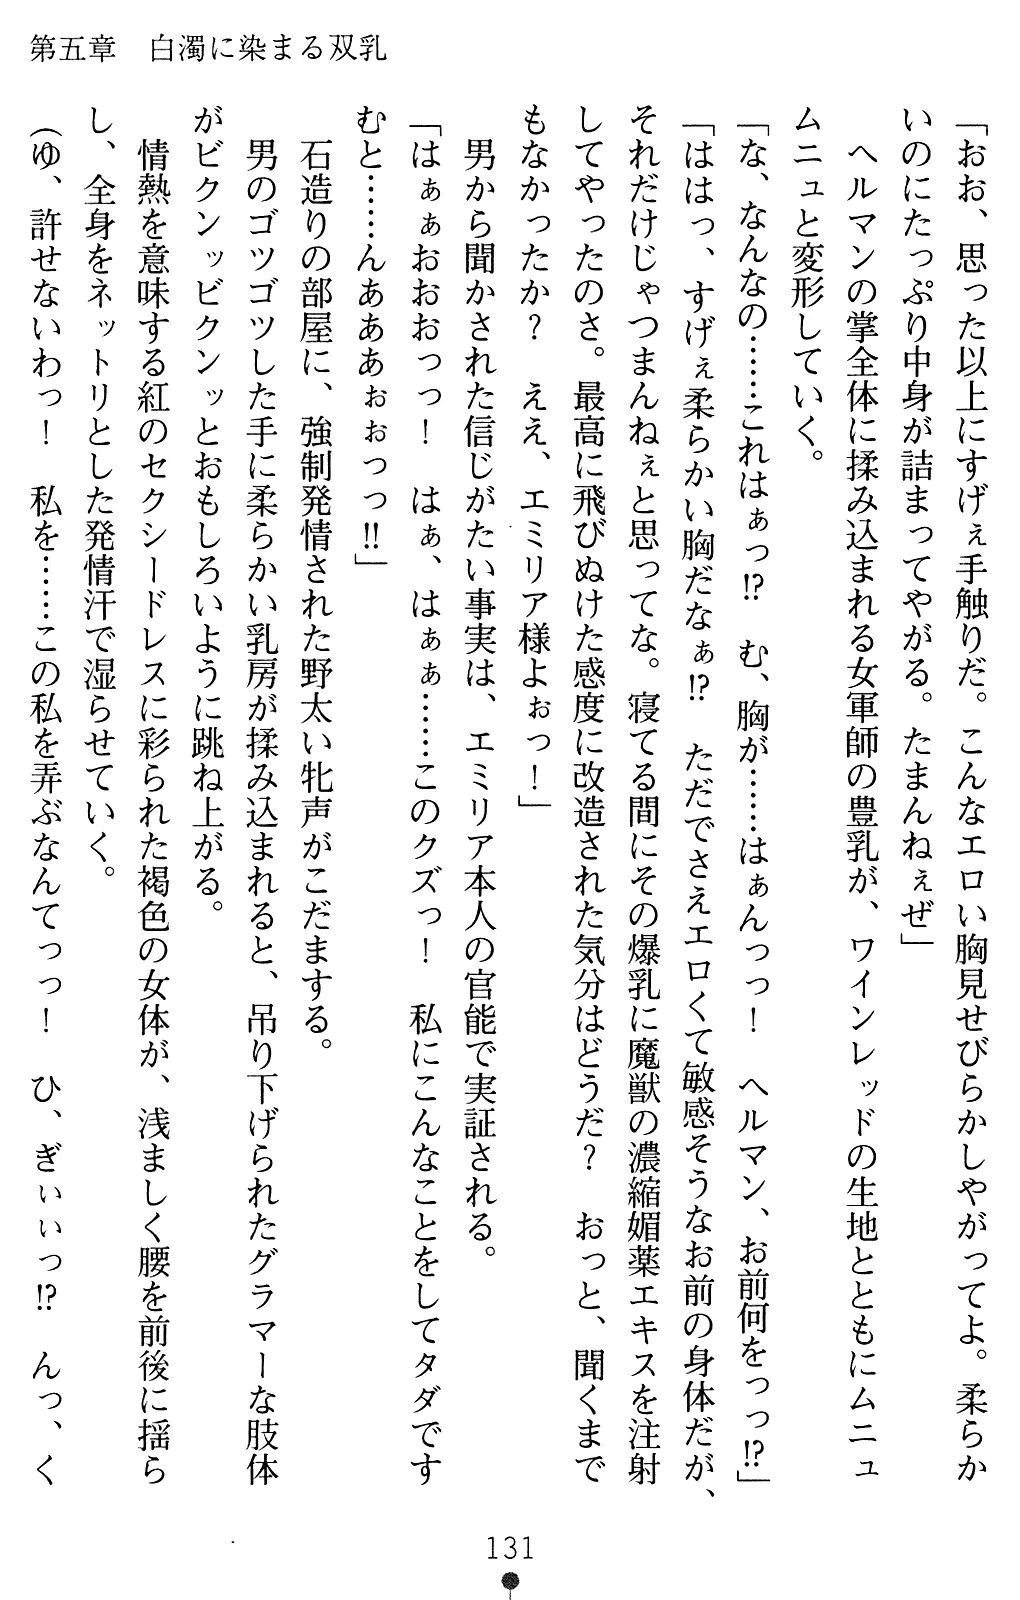 第五章　白濁に染まる双乳
「おお、思った以上にすげぇ手触りだ。こんなエロい胸見せびらかしやがってよ。柔らか
いのにたっぷり中身が詰まってやがる。たまんねぇぜ」
　ヘルマンの掌全体に揉み込まれる女軍師の豊乳が、ワインレッドの生地とともにムニュ
ムニュと変形していく。
「な、なんなの……これはぁっ!?　む、胸が……はぁんっっ！　ヘルマン、お前何をっっ!?」
「ははっ、すげぇ柔らかい胸だなぁ!?　ただでさえエロくて敏感そうなお前の身体だが、
それだけじゃつまんねぇと思ってな。寝てる間にその爆乳に魔獣の濃縮媚薬エキスを注射
してやったのさ。最高に飛びぬけた感度に改造された気分はどうだ？　おっと、聞くまで
もなかったか？　ええ、エミリア様よぉっ！」
　男から聞かされた信じがたい事実は、エミリア本人の官能で実証される。
「はぁぁおおおっっ！　はぁ、はぁぁ……このクズっ！　私にこんなことをしてタダです
むと……んあああぉぉっっ!!」
　石造りの部屋に、強制発情された野太い牝声がこだまする。
　男のゴツゴツした手に柔らかい乳房が揉み込まれると、吊り下げられたグラマーな肢体
がビクンッビクンッとおもしろいように跳ね上がる。
　情熱を意味する紅のセクシードレスに彩られた褐色の女体が、浅ましく腰を前後に揺ら
し、全身をネットリとした発情汗で湿らせていく。
（ゆ、許せないわっ！　私を……この私を弄ぶなんてっっ！　ひ、ぎぃぃっ!?　んっ、く
131